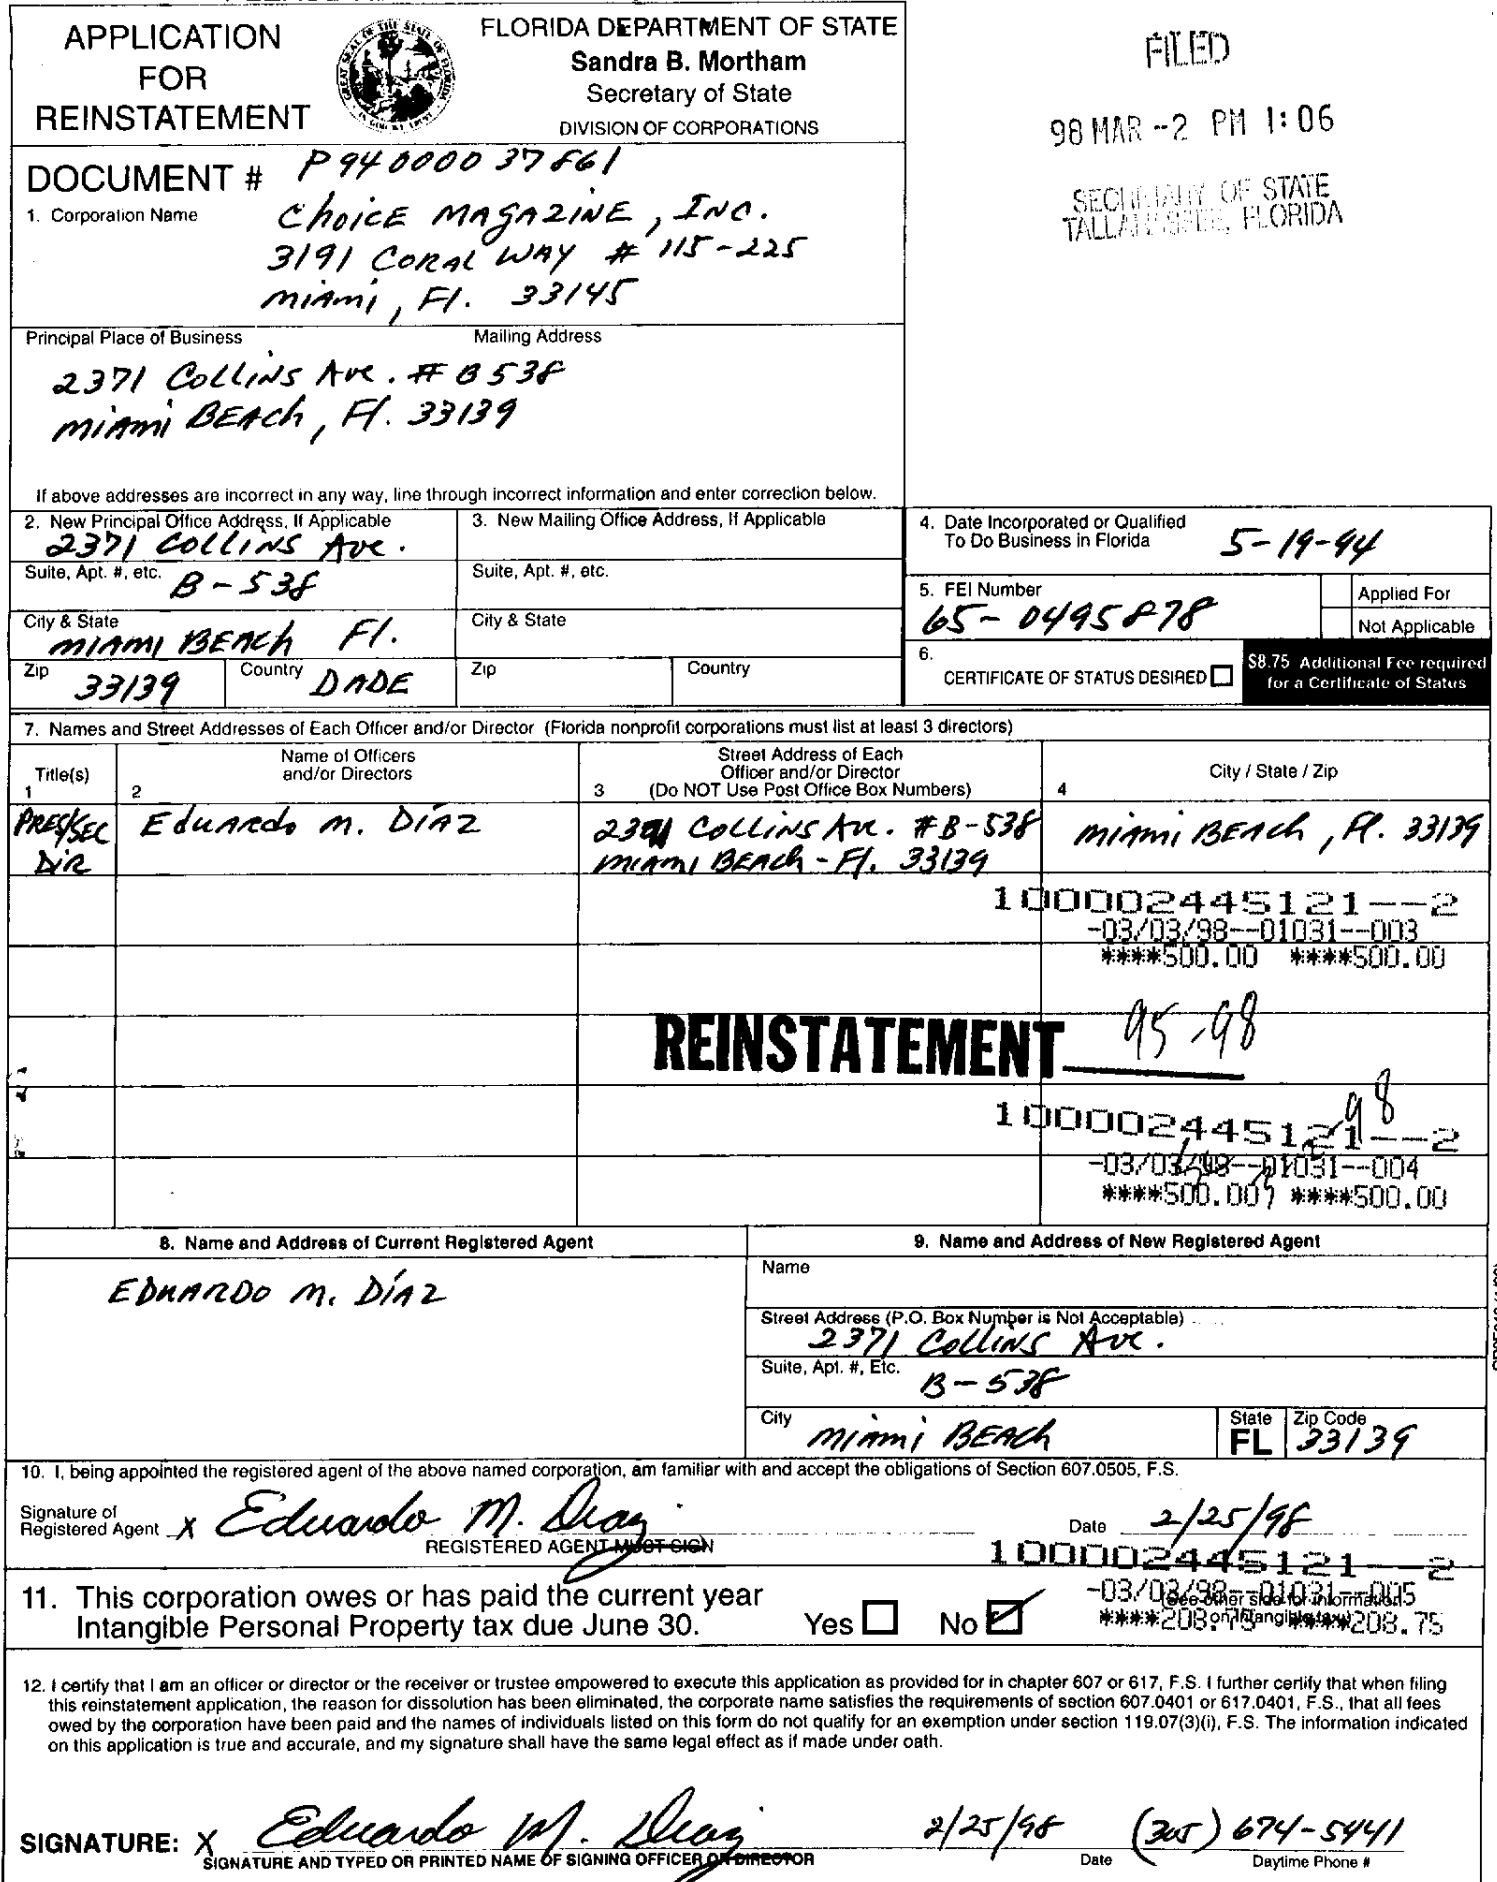 APPLICATION
FOR
REINSTATEMENT
FLORIDA DEPARTMENT OF STATE
Sandra B. Mortham
Secretary of State
DIVISION OF CORPORATIONS
FILED
98 MAR -2 PM 1:06
SECRETARY OF STATE
TALLAHASSEE, FLORIDA
DOCUMENT # P94000037861
1. Corporation Name
Choice Magazine, Inc.
3191 Coral Way # 115-225
Miami, Fl. 33145
Principal Place of Business Mailing Address
2371 Collins Ave. # B538
Miami Beach, Fl. 33139
If above addresses are incorrect in any way, line through incorrect information and enter correction below.
2. New Principal Office Address, If Applicable
2371 Collins Ave.
3. New Mailing Office Address, If Applicable
4. Date Incorporated or Qualified
To Do Business in Florida 5-19-94
Suite, Apt. #, etc. B-538
Suite, Apt. #, etc.
5. FEI Number
65-0495878
Applied For
Not Applicable
City & State
Miami Beach Fl.
City & State
6.
CERTIFICATE OF STATUS DESIRED
$8.75 Additional Fee required
for a Certificate of Status
Zip 33139
Country DADE
Zip
Country
7. Names and Street Addresses of Each Officer and/or Director (Florida nonprofit corporations must list at least 3 directors)
Title(s)
1
Name of Officers
and/or Directors
2
Street Address of Each
Officer and/or Director
3 (Do NOT Use Post Office Box Numbers)
City / State / Zip
4
Pres/Sec
Dir
Eduardo M. Díaz
2371 Collins Ave. #B-538
Miami Beach - Fl. 33139
Miami Beach, Fl. 33139
100002445121--2
-03/03/98--01031--003
****500.00 ****500.00
REINSTATEMENT 95-98
98
100002445121--2
-03/03/98--01031--004
****500.00 ****500.00
8. Name and Address of Current Registered Agent
Eduardo M. Díaz
9. Name and Address of New Registered Agent
Name
Street Address (P.O. Box Number is Not Acceptable)
2371 Collins Ave.
Suite, Apt. #, Etc.
B-538
City Miami Beach
State
FL
Zip Code
33139
10. I, being appointed the registered agent of the above named corporation, am familiar with and accept the obligations of Section 607.0505, F.S.
Signature of
Registered Agent X Eduardo M. Diaz
REGISTERED AGENT MUST SIGN
Date 2/25/98
100002445121--2
-03/03/98--01031--005
****208.75 ****208.75
(See other side for information
on intangible tax)
11. This corporation owes or has paid the current year
Intangible Personal Property tax due June 30. Yes No
12. I certify that I am an officer or director or the receiver or trustee empowered to execute this application as provided for in chapter 607 or 617, F.S. I further certify that when filing
this reinstatement application, the reason for dissolution has been eliminated, the corporate name satisfies the requirements of section 607.0401 or 617.0401, F.S., that all fees
owed by the corporation have been paid and the names of individuals listed on this form do not qualify for an exemption under section 119.07(3)(i), F.S. The information indicated
on this application is true and accurate, and my signature shall have the same legal effect as if made under oath.
SIGNATURE: X Eduardo M. Diaz 2/25/98 (305) 674-5441
SIGNATURE AND TYPED OR PRINTED NAME OF SIGNING OFFICER OR DIRECTOR Date Daytime Phone #